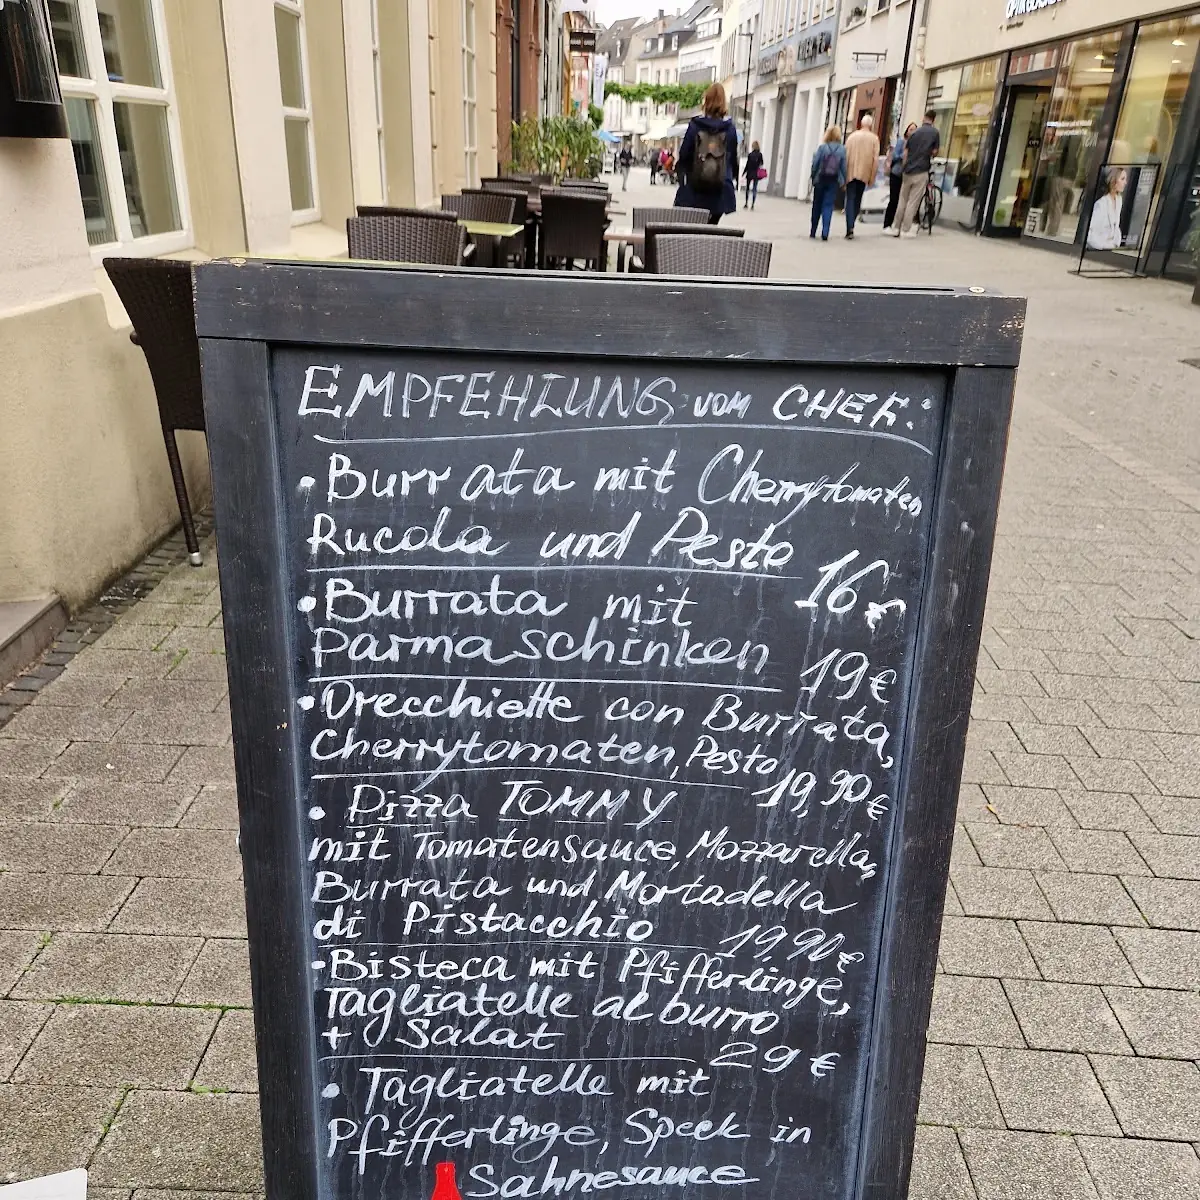 EMPFEHLUNG VOM CHEF:
• Burrata mit Cherrytomaten
Rucola und Pesto
16€
• Burrata mit
Parmaschinken
19€
• Orecchiette con Burrata,
Cherrytomaten, Pesto
19,90€
• Pizza TOMMY
mit Tomatensauce, Mozzarella,
Burrata und Mortadella
di Pistacchio
19,90€
- Bisteca mit Pfifferlinge,
Tagliatelle al burro
+ Salat
29€
• Tagliatelle mit
Pfifferlinge, Speck in
Sahnesauce